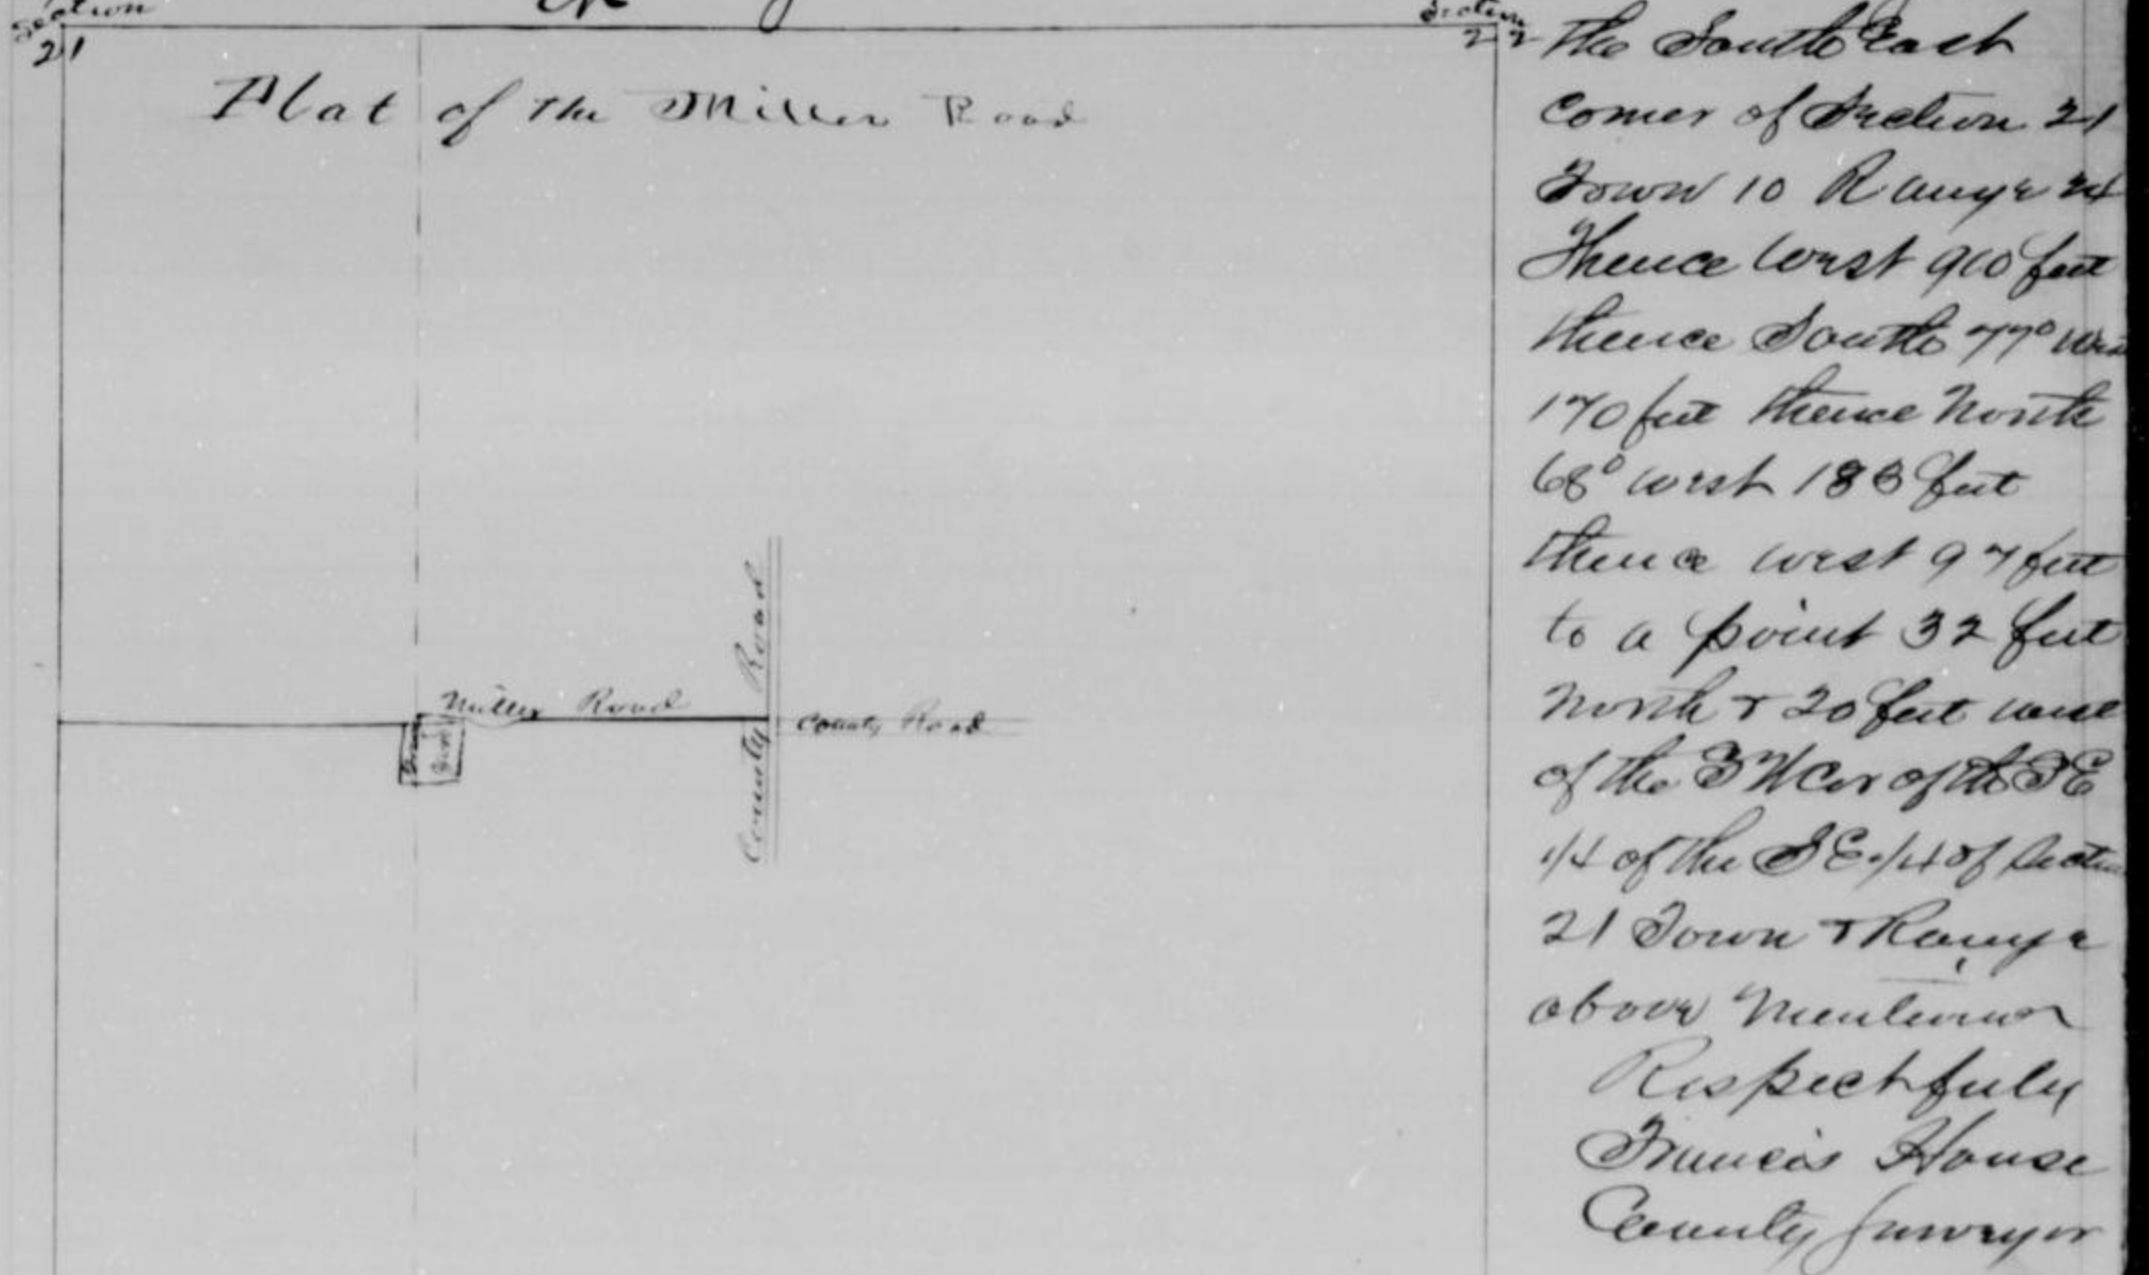 Section
21
Section
22
Plat of the Miller Road
Miller Road
County Road
County Road
The South East
Corner of Section 21
Town 10 Range 24
Thence West 910 feet
thence South 77° West
170 feet thence North
68° West 183 feet
thence West 97 feet
to a point 32 feet
North & 20 feet west
of the S W Cor of the S E
1/4 of the S E 1/4 of Section
21 Town & Range
above Mentioned
Respectfuly
Francis House
County Surveyor